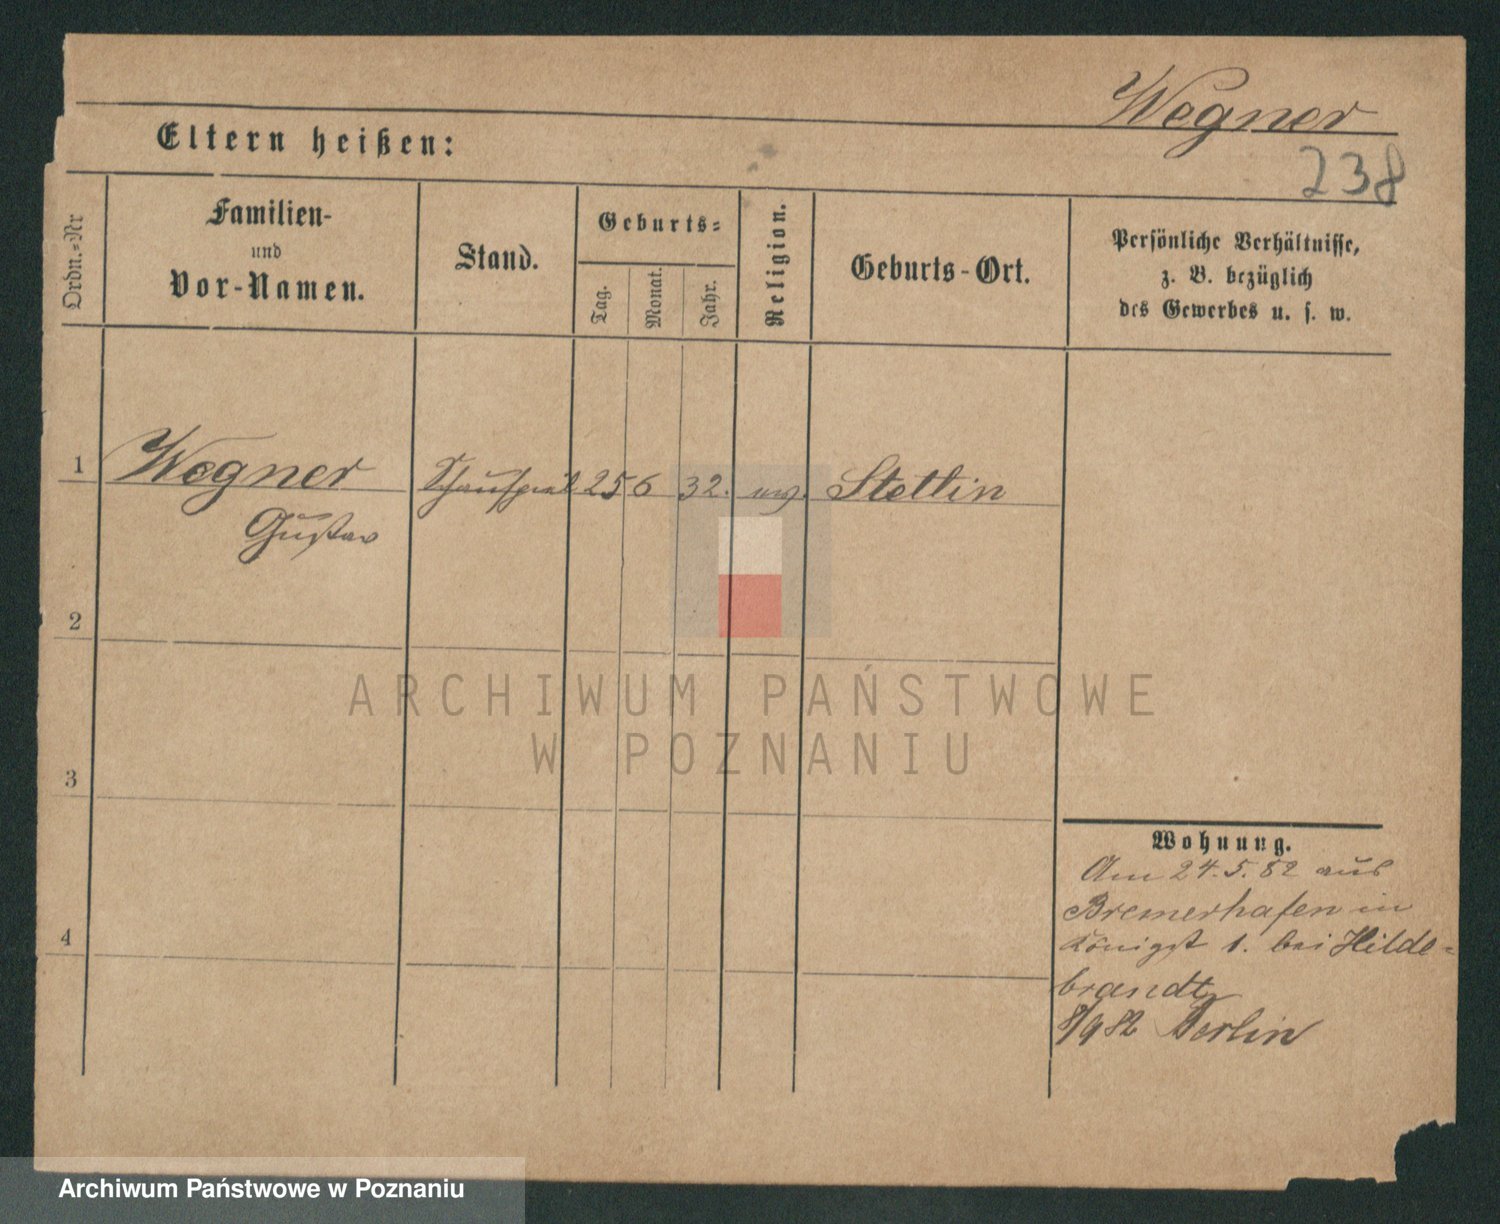 Wegner
238
Eltern heißen:
Ordn.-Nr
Familien-
und
Vor-Namen.
Stand.
Geburts-
Tag.
Monat.
Jahr.
Religion.
Geburts-Ort.
Persönliche Verhältnisse,
z. B. bezüglich
des Gewerbes u. s. w.
1 Wegner Schauspiel 25 6 32. Stettin
Gustav
2
3
4
ARCHIWUM PAŃSTWOWE
W POZNANIU
Wohnung.
Am 24.5.82 aus
Bremerhafen in
Königst 1. bei Hilde-
brandt
8/9 82 Berlin
Archiwum Państwowe w Poznaniu